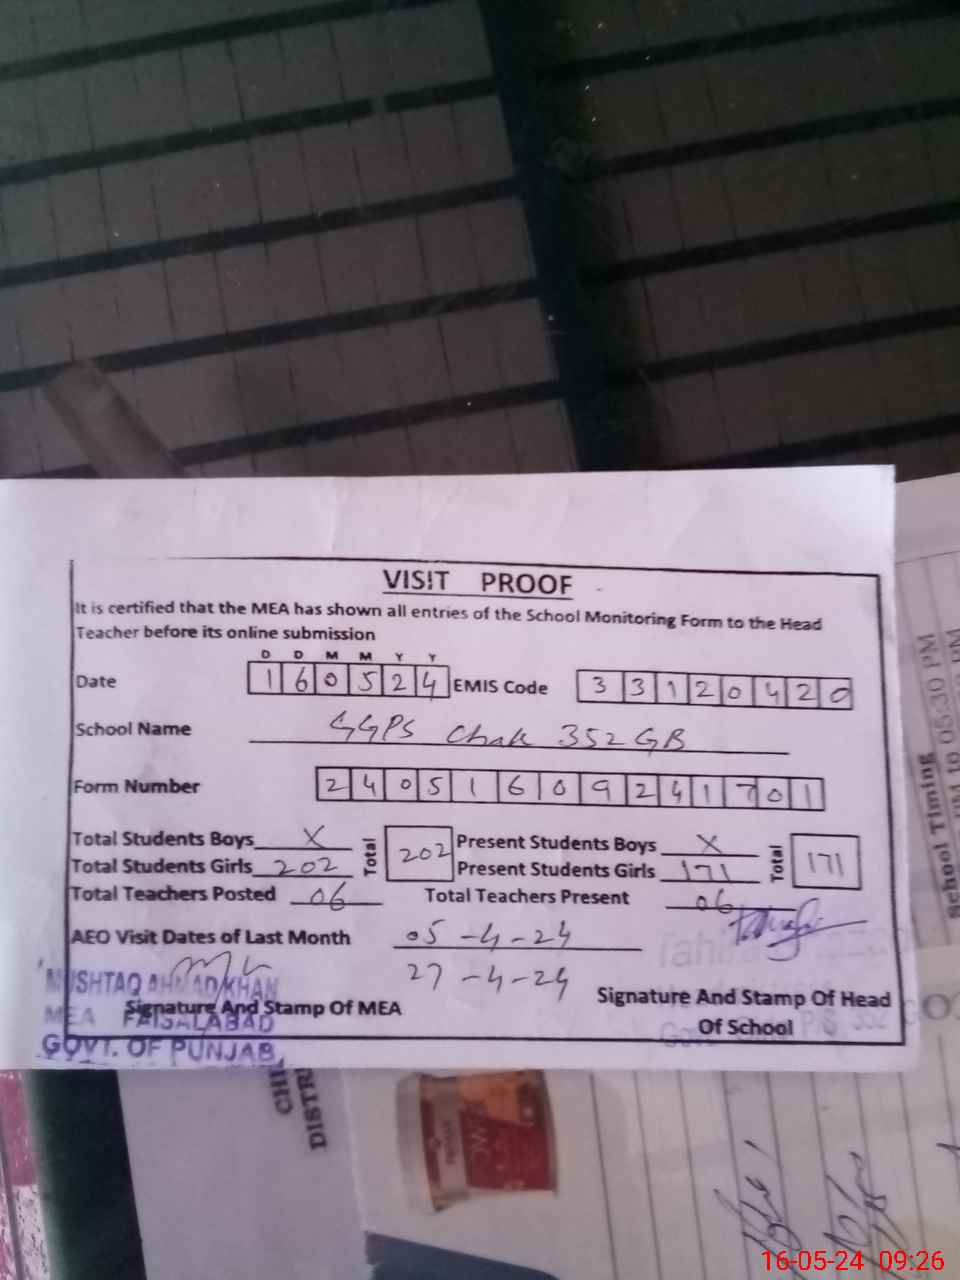 VISIT PROOF
It is certified that the MEA has shown all entries of the School Monitoring Form to the Head
Teacher before its online submission
D D M M Y Y
Date 1 6 0 5 2 4 EMIS Code 3 3 1 2 0 4 2 0
School Name GGPS Chak 352 GB
Form Number 2 4 0 5 1 6 0 9 2 4 1 7 0 1
Total Students Boys X Total 202 Present Students Boys X Total 171
Total Students Girls 202 Present Students Girls 171
Total Teachers Posted 06 Total Teachers Present 06
AEO Visit Dates of Last Month 05-4-24
27-4-24
MUSHTAQ AHMAD KHAN
Signature And Stamp Of MEA
MEA FAISALABAD
GOVT. OF PUNJAB
Signature And Stamp Of Head
Of School
School Timing
05:30 PM
16-05-24 09:26